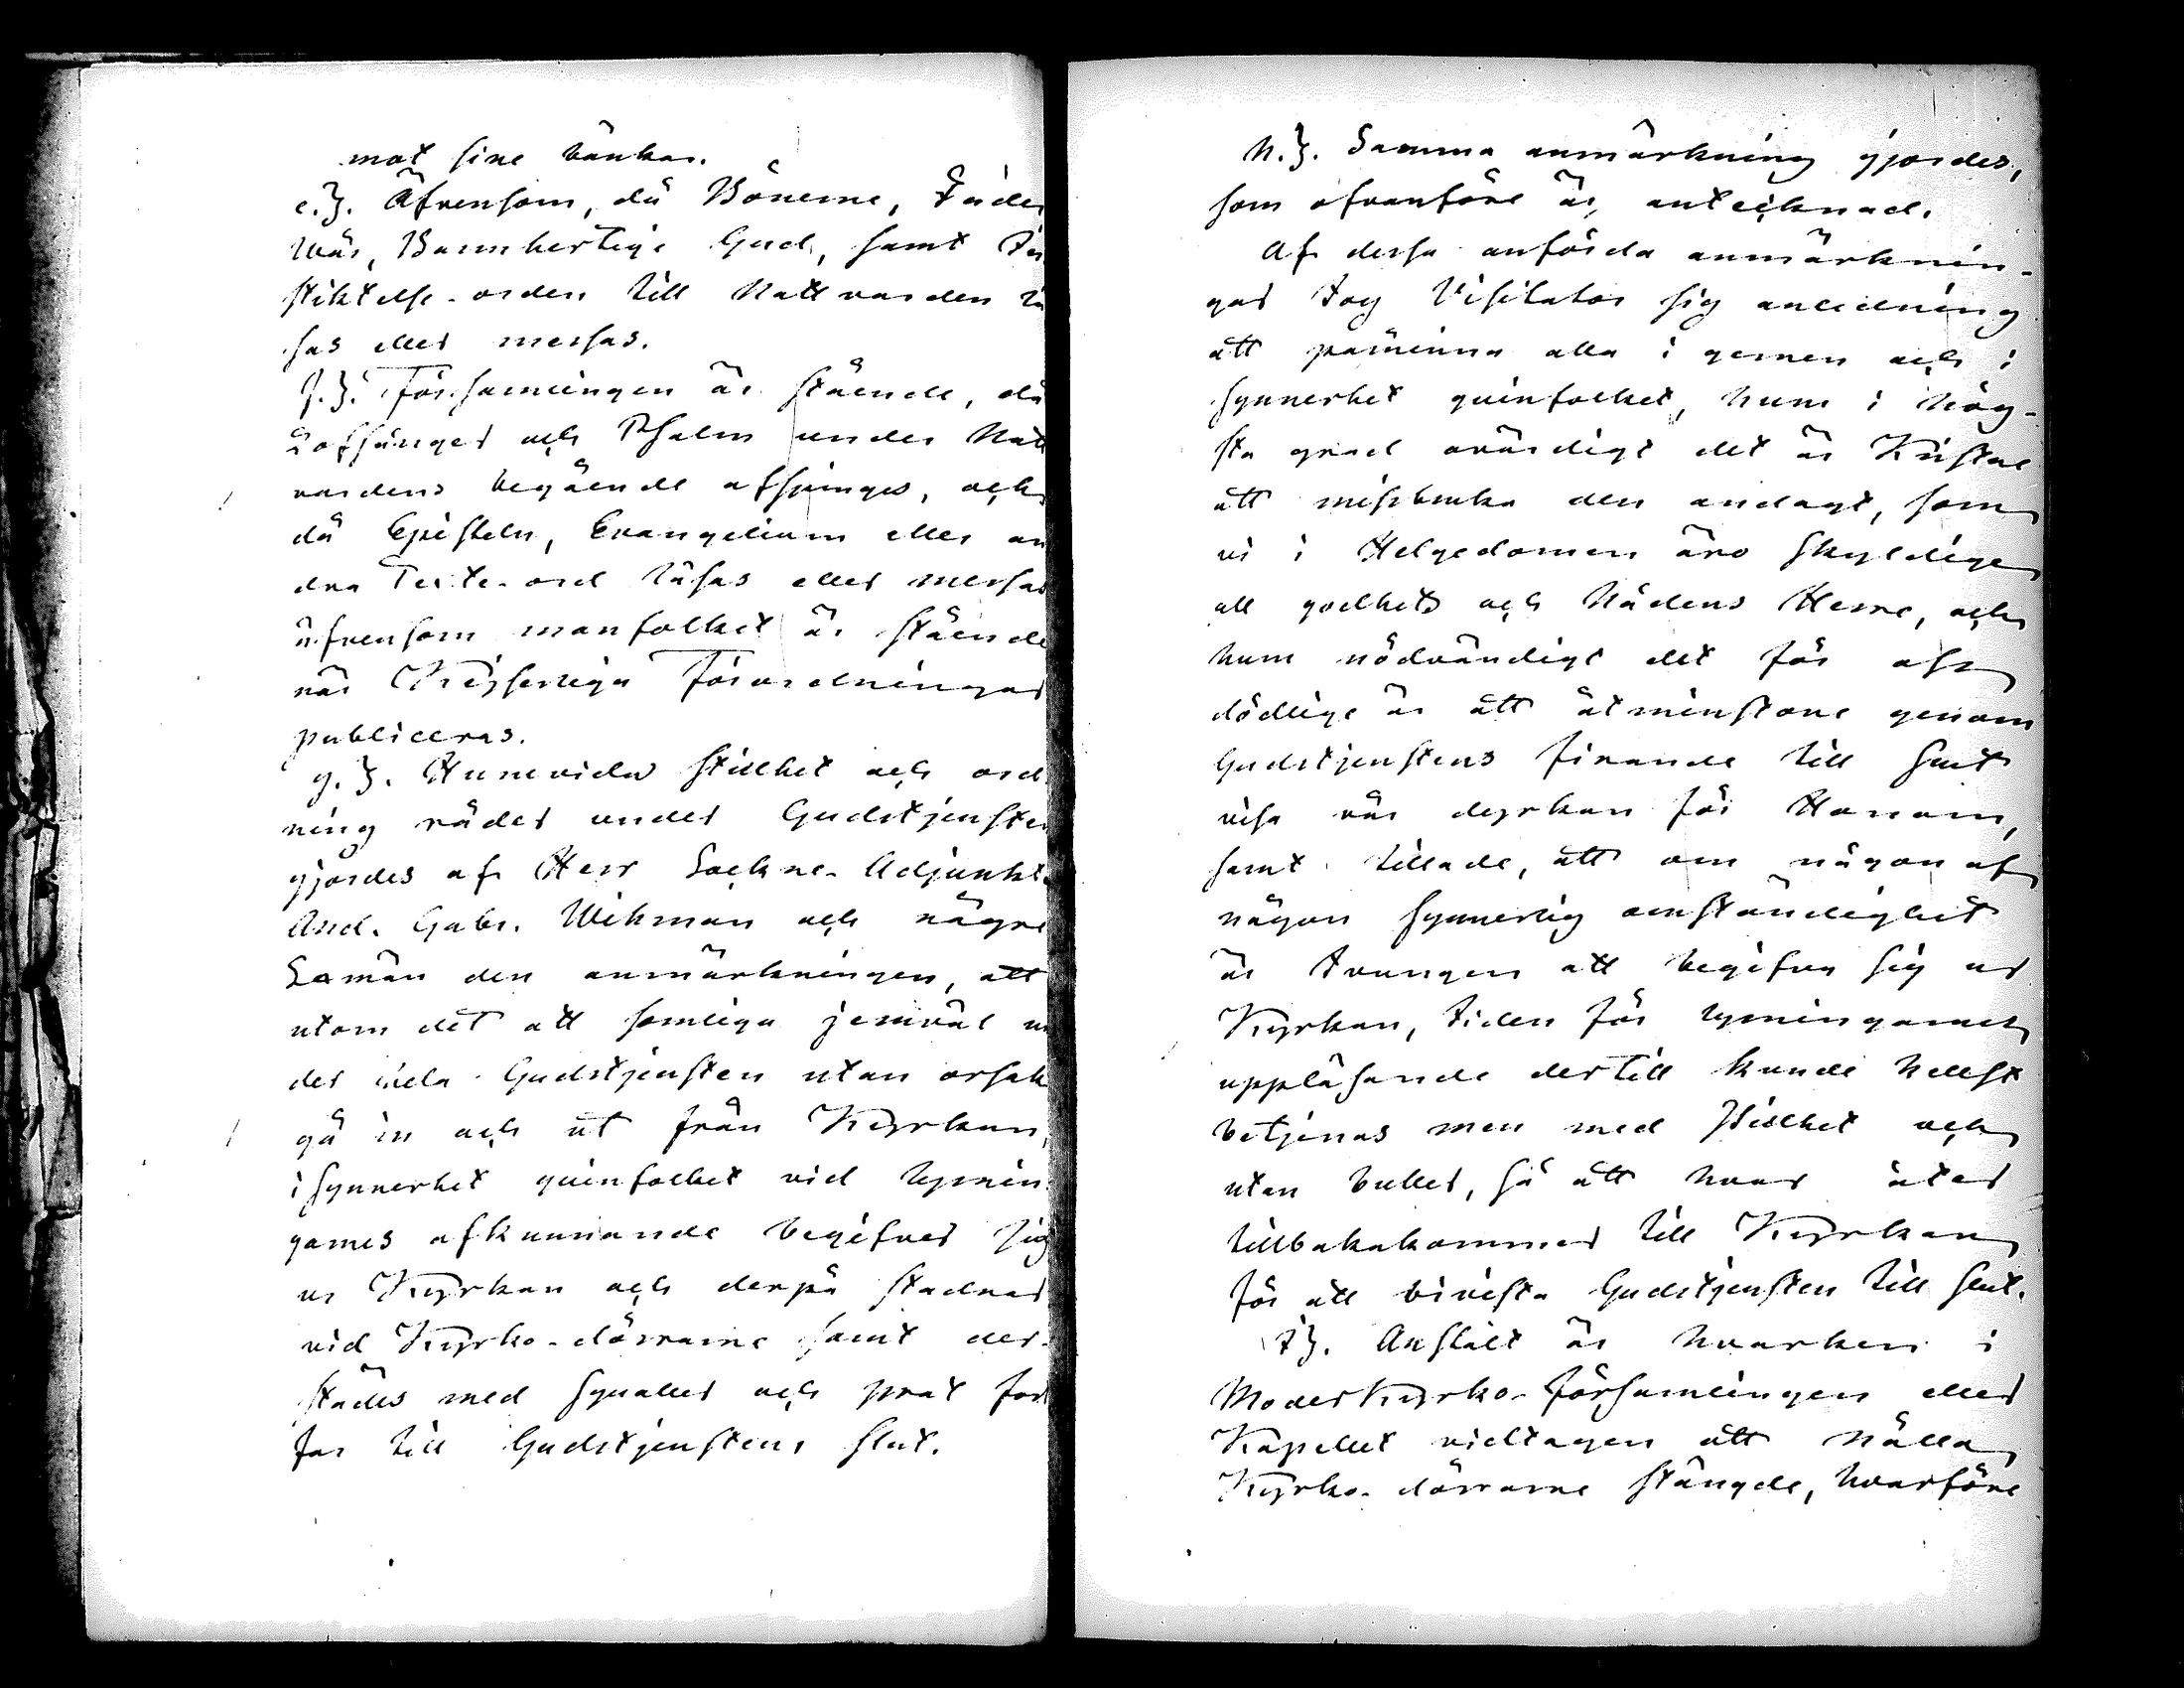 mot sine bänkar.
e.). Äfvensom, då Bönerne, Fader
Wår, Barmhertige Gud, samt In
stiktelse-orden till Nattvarden lä
sas eller messas.
f.). Församlingen är stående, då
Lofsånger och Psalm under Natt
vardens begående afsjunges, och
då Episteln, Evangelium eller an
dra Texte-ord läsas eller messas
äfvensom manfolket är stående
när Kejserliga Förordningar
publiceras.
g.). Huruvida stillhet och ord
ning råder under Gudstjensten
gjordes af Herr Sockne-Adjunkt
And. Gabr. Wikman och någre
Lemän den anmärkningen, att
utom det att somliga jemväl un
der hela Gudstjensten utan orsak
gå in och ut från Kyrkan,
isynnerhet quinfolket vid lysnin
garnes afkunnande begifver sig
ur Kyrkan och derpå stadnar
vid Kyrko-dörrarne samt der-
städes med squaller och prat fort
far till Gudstjenstens slut.
h.). Samma anmärkning gjordes,
som ofvanföre är antecknad.
Af dessa anförda anmärknin-
gar tog Visitator sig anledning
att påminna alla i gemen och i
synnerhet quinfolket, huru i hög-
sta grad ovärdigt det är Kristne
att missbruka den andagt, som
vi i Helgedomen äro skyldige
all godhets och Nådens Herre, och
huru nödvändigt det för oss
dödlige är att åtminstone genom
Gudstjenstens firande till slut
visa vår dyrkan för Honom,
samt tillade, att om någon af
någon synnerlig omständighet
är tvungen att begifva sig ur
Kyrkan, tiden för lysningarnes
uppläsande dertill kunde helst
betjenas men med stillhet och
utan buller, så att hvar åter
tillbakakommer till Kyrkan
för att bivista Gudstjensten till slut.
i). Anstalt är hvarken i
Moderkyrko-Församlingen eller
Kapellet vidtagen att hålla
Kyrko-dörrarne stängde, hvarföre